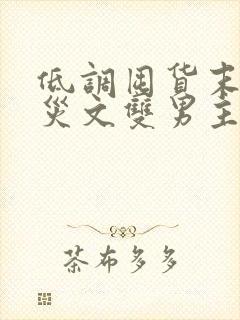 低調囤货末
災文雙男主
茶布多多